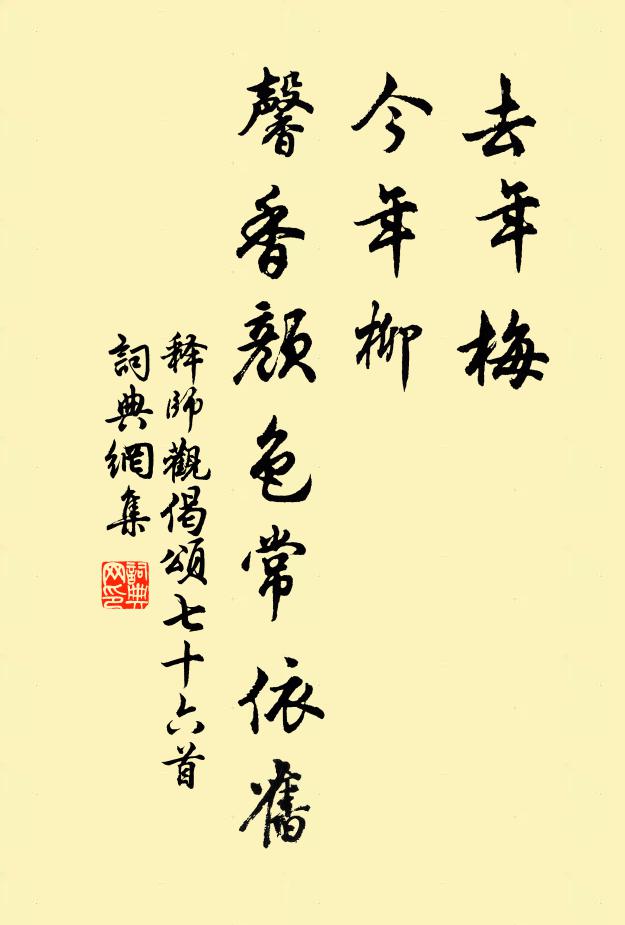 去年梅
今年柳
馨香颜色常依舊
释師觀偈頌七十六首
詞典網集
詞典网印